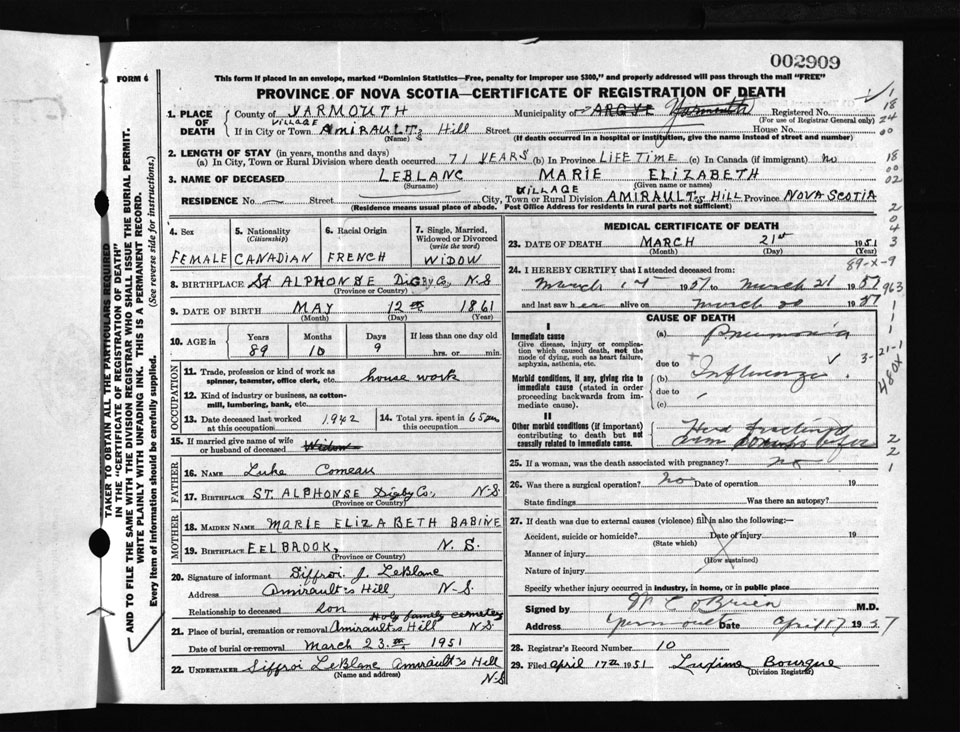 002909
FORM 6
This form if placed in an envelope, marked "Dominion Statistics—Free, penalty for improper use $300," and properly addressed will pass through the mail "FREE"
PROVINCE OF NOVA SCOTIA—CERTIFICATE OF REGISTRATION OF DEATH
1. PLACE OF DEATH County of YARMOUTH Municipality of ARGYLE Yarmouth Registered No.
(For use of Registrar General only)
VILLAGE
If in City or Town AMIRAULT'S Hill Street House No.
(Name) (If death occurred in a hospital or institution, give the name instead of street and number)
2. LENGTH OF STAY (in years, months and days)
(a) In City, Town or Rural Division where death occurred 71 YEARS (b) In Province LIFE TIME (c) In Canada (if immigrant) no
3. NAME OF DECEASED LEBLANC MARIE ELIZABETH
(Surname) (Given name or names)
VILLAGE
RESIDENCE No. Street City, Town or Rural Division AMIRAULT'S HILL Province NOVA SCOTIA
(Residence means usual place of abode. Post Office Address for residents in rural parts not sufficient)
4. Sex 5. Nationality (Citizenship) 6. Racial Origin 7. Single, Married, Widowed or Divorced (write the word)
FEMALE CANADIAN FRENCH WIDOW
8. BIRTHPLACE St ALPHONSE DIGBY Co, N.S
(Province or Country)
9. DATE OF BIRTH MAY 12th 1861
(Month) (Day) (Year)
10. AGE in Years Months Days If less than one day old
89 10 9 hrs. or min.
OCCUPATION
11. Trade, profession or kind of work as spinner, teamster, office clerk, etc. house work
12. Kind of industry or business, as cotton-mill, lumbering, bank, etc.
13. Date deceased last worked at this occupation 1942 14. Total yrs. spent in this occupation 65 yrs
15. If married give name of wife or husband of deceased Widow
FATHER
16. NAME Luke Comeau
17. BIRTHPLACE ST. ALPHONSE Digby Co, N-S
(Province or Country)
MOTHER
18. MAIDEN NAME MARIE ELIZABETH BABINE
19. BIRTHPLACE EELBROOK, N. S.
(Province or Country)
20. Signature of informant Siffroi J. LeBlanc
Address Amirault's Hill, N-S.
Relationship to deceased son
Holy family cemetery
21. Place of burial, cremation or removal Amirault's Hill N.S
Date of burial or removal March 23 1951
22. UNDERTAKER Siffroi LeBlanc Amirault's Hill
(Name and address) N-S
MEDICAL CERTIFICATE OF DEATH
23. DATE OF DEATH MARCH 21st 1951
(Month) (Day) (Year)
89-x-9
24. I HEREBY CERTIFY that I attended deceased from:
March 1951 to March 21 1951
and last saw her alive on March 20 1951
CAUSE OF DEATH
I
Immediate cause
Give disease, injury or complication which caused death, not the mode of dying, such as heart failure, asphyxia, asthenia, etc.
(a) Pneumonia
due to
Morbid conditions, if any, giving rise to immediate cause (stated in order proceeding backwards from immediate cause).
(b) Influenza
due to
(c)
II
Other morbid conditions (if important) contributing to death but not causally related to immediate cause.
Had fractured arm
25. If a woman, was the death associated with pregnancy? no
26. Was there a surgical operation? no Date of operation 19
State findings Was there an autopsy?
27. If death was due to external causes (violence) fill in also the following:—
Accident, suicide or homicide? Date of injury 19
(State which)
Manner of injury
(How sustained)
Nature of injury
Specify whether injury occurred in industry, in home, or in public place
Signed by W C O'Brien M.D.
Address Yarmouth Date April 17 1957
28. Registrar's Record Number 10
29. Filed April 17th 1951 Luxime Bourque
(Division Registrar)
1
18
24
00
18
00
02
2
0
4
3
963
1
1
1
3-21-1
480X
2
2
1
TAKER TO OBTAIN ALL THE PARTICULARS REQUIRED
IN THE "CERTIFICATE OF REGISTRATION OF DEATH"
AND TO FILE THE SAME WITH THE DIVISION REGISTRAR WHO SHALL ISSUE THE BURIAL PERMIT.
WRITE PLAINLY WITH UNFADING INK. THIS IS A PERMANENT RECORD.
Every item of information should be carefully supplied. (See reverse side for instructions.)